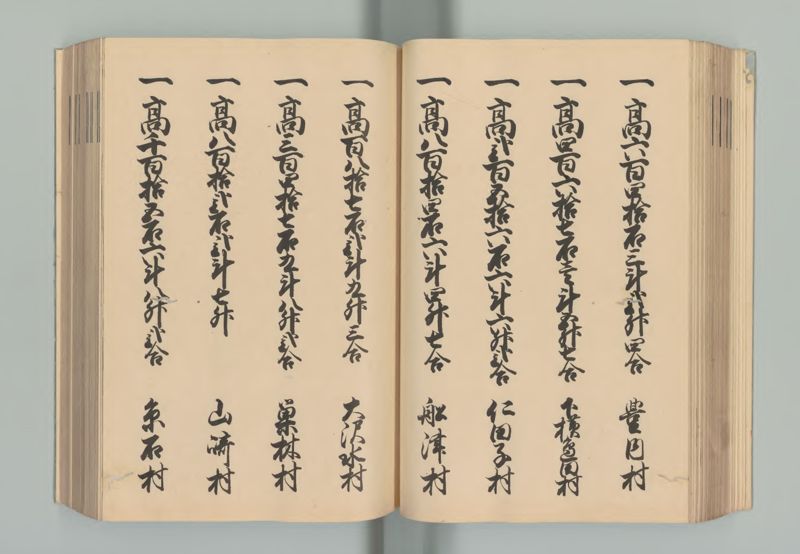 一 高六百四拾石三斗弐升四合 豊田村
一 高四百六拾七石壱斗五升七合 下横邊田村
一 高弐百五拾六石六斗六升弐合 仁田子村
一 高八百拾四石六斗四升七合 船津村
一 高百八拾七石弐斗九升三合 大沢水村
一 高三百四拾七石九斗八升弐合 巣林村
一 高八百拾弐石弐斗七升 山崎村
一 高千百拾五石六斗八升弐合 京石村